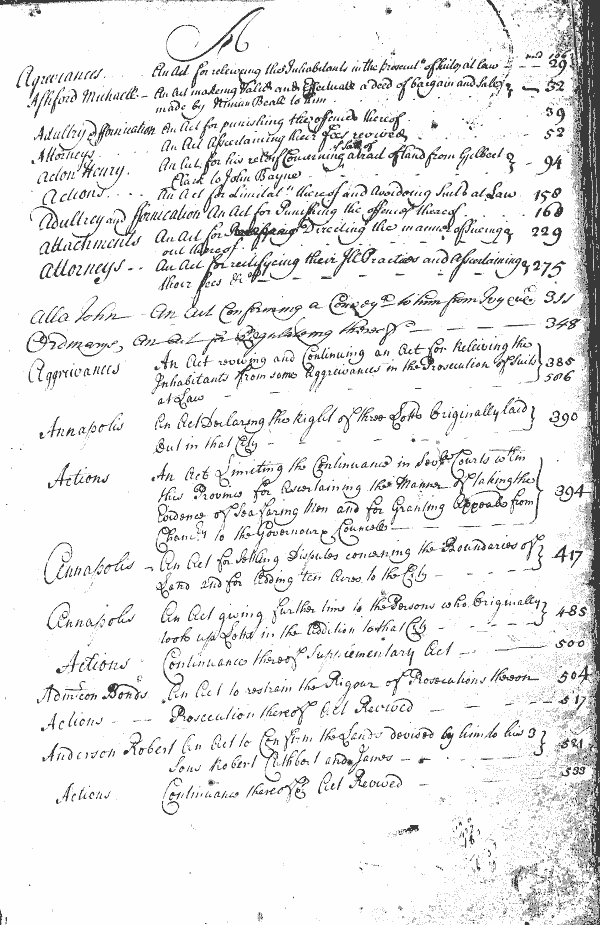 A
Agrevances. An Act for releiving the Inhabitants in the prosecut.n of suits at law 29
Ashford Michaell - An Act making Valid and Effectuale a deed of bargain and Sale 32
made by Ninian Beall to him
Adultry & fornication An Act for punishing the offences thereof 39
Attorneys. An Act Ascertaining their fees revived 52
Acton Henry. An Act for his relief Concerning a tract of land from Gilbert 94
Clark to John Bayne
Actions An Act for Limitat.n thereof and Avoidoing Suits at Law 158
Adultrey and fornication An Act for Punishing the offences thereof 160
Attachments An Act for Directing the manner of Sueing 229
out thereof
Attorneys - An Act for rectifyeing their Ill Practices and Ascertaining 275
their fees &c
Alla John - An Act Confirming a Convey.a to him from 311
Ordinarys, An Act for Regulateing thereof 348
Aggreivances An Act reviving and Continuing an Act for Releiving the
Inhabitants from some Aggreivances in the Prosecution of Suits 385
at Law 506
Annapolis An Act Declaring the Right of three Lotts Originally laid 390
Out in that City
Actions An Act Limiting the Continuance in Sev.ll Courts w.thin
this Province for Ascertaining the Manner of taking the
Evidence of Sea faring Men and for Granting Appeals from 394
Chan.ry to the Governour & Councell
Annapolis - An Act for Setling Disputes concerning the Boundaries of 417
Land and for Adding ten Acres to the City
Annapolis An Act giving further time to the Persons who Originally 485
took up Lotts in the Addition to that City
Actions Continuance thereof Supplementary Act 500
Adm:con Bonds An Act to restrain the Rigour of Prosecutions thereon 504
Actions Prosecution thereof Act Revived 517
Anderson Robert An Act to Confirm the Lands devised by him to his 3 521
Sons Robert Cuthbert and James
Actions Continuance thereof &c Act Revived 533